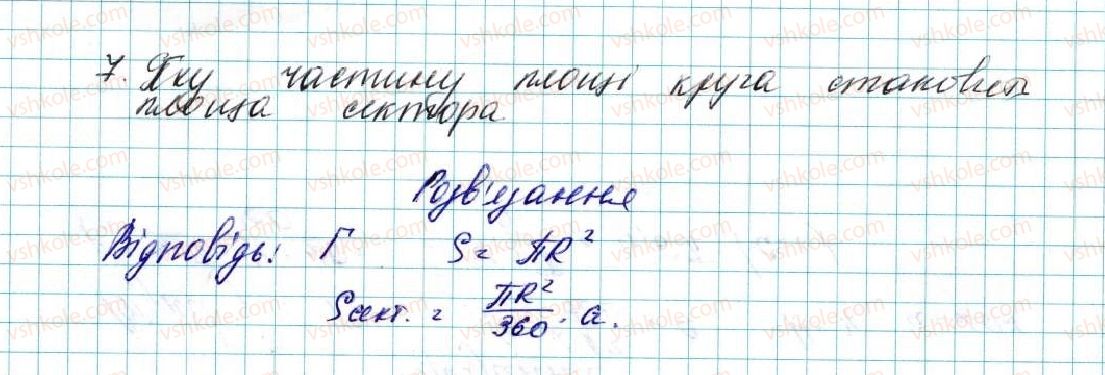 7. Яку частину площі круга становить
площа сектора.
Розв'язання
Відповідь: Г S = πR²
Sсект. = πR²/360 · a.